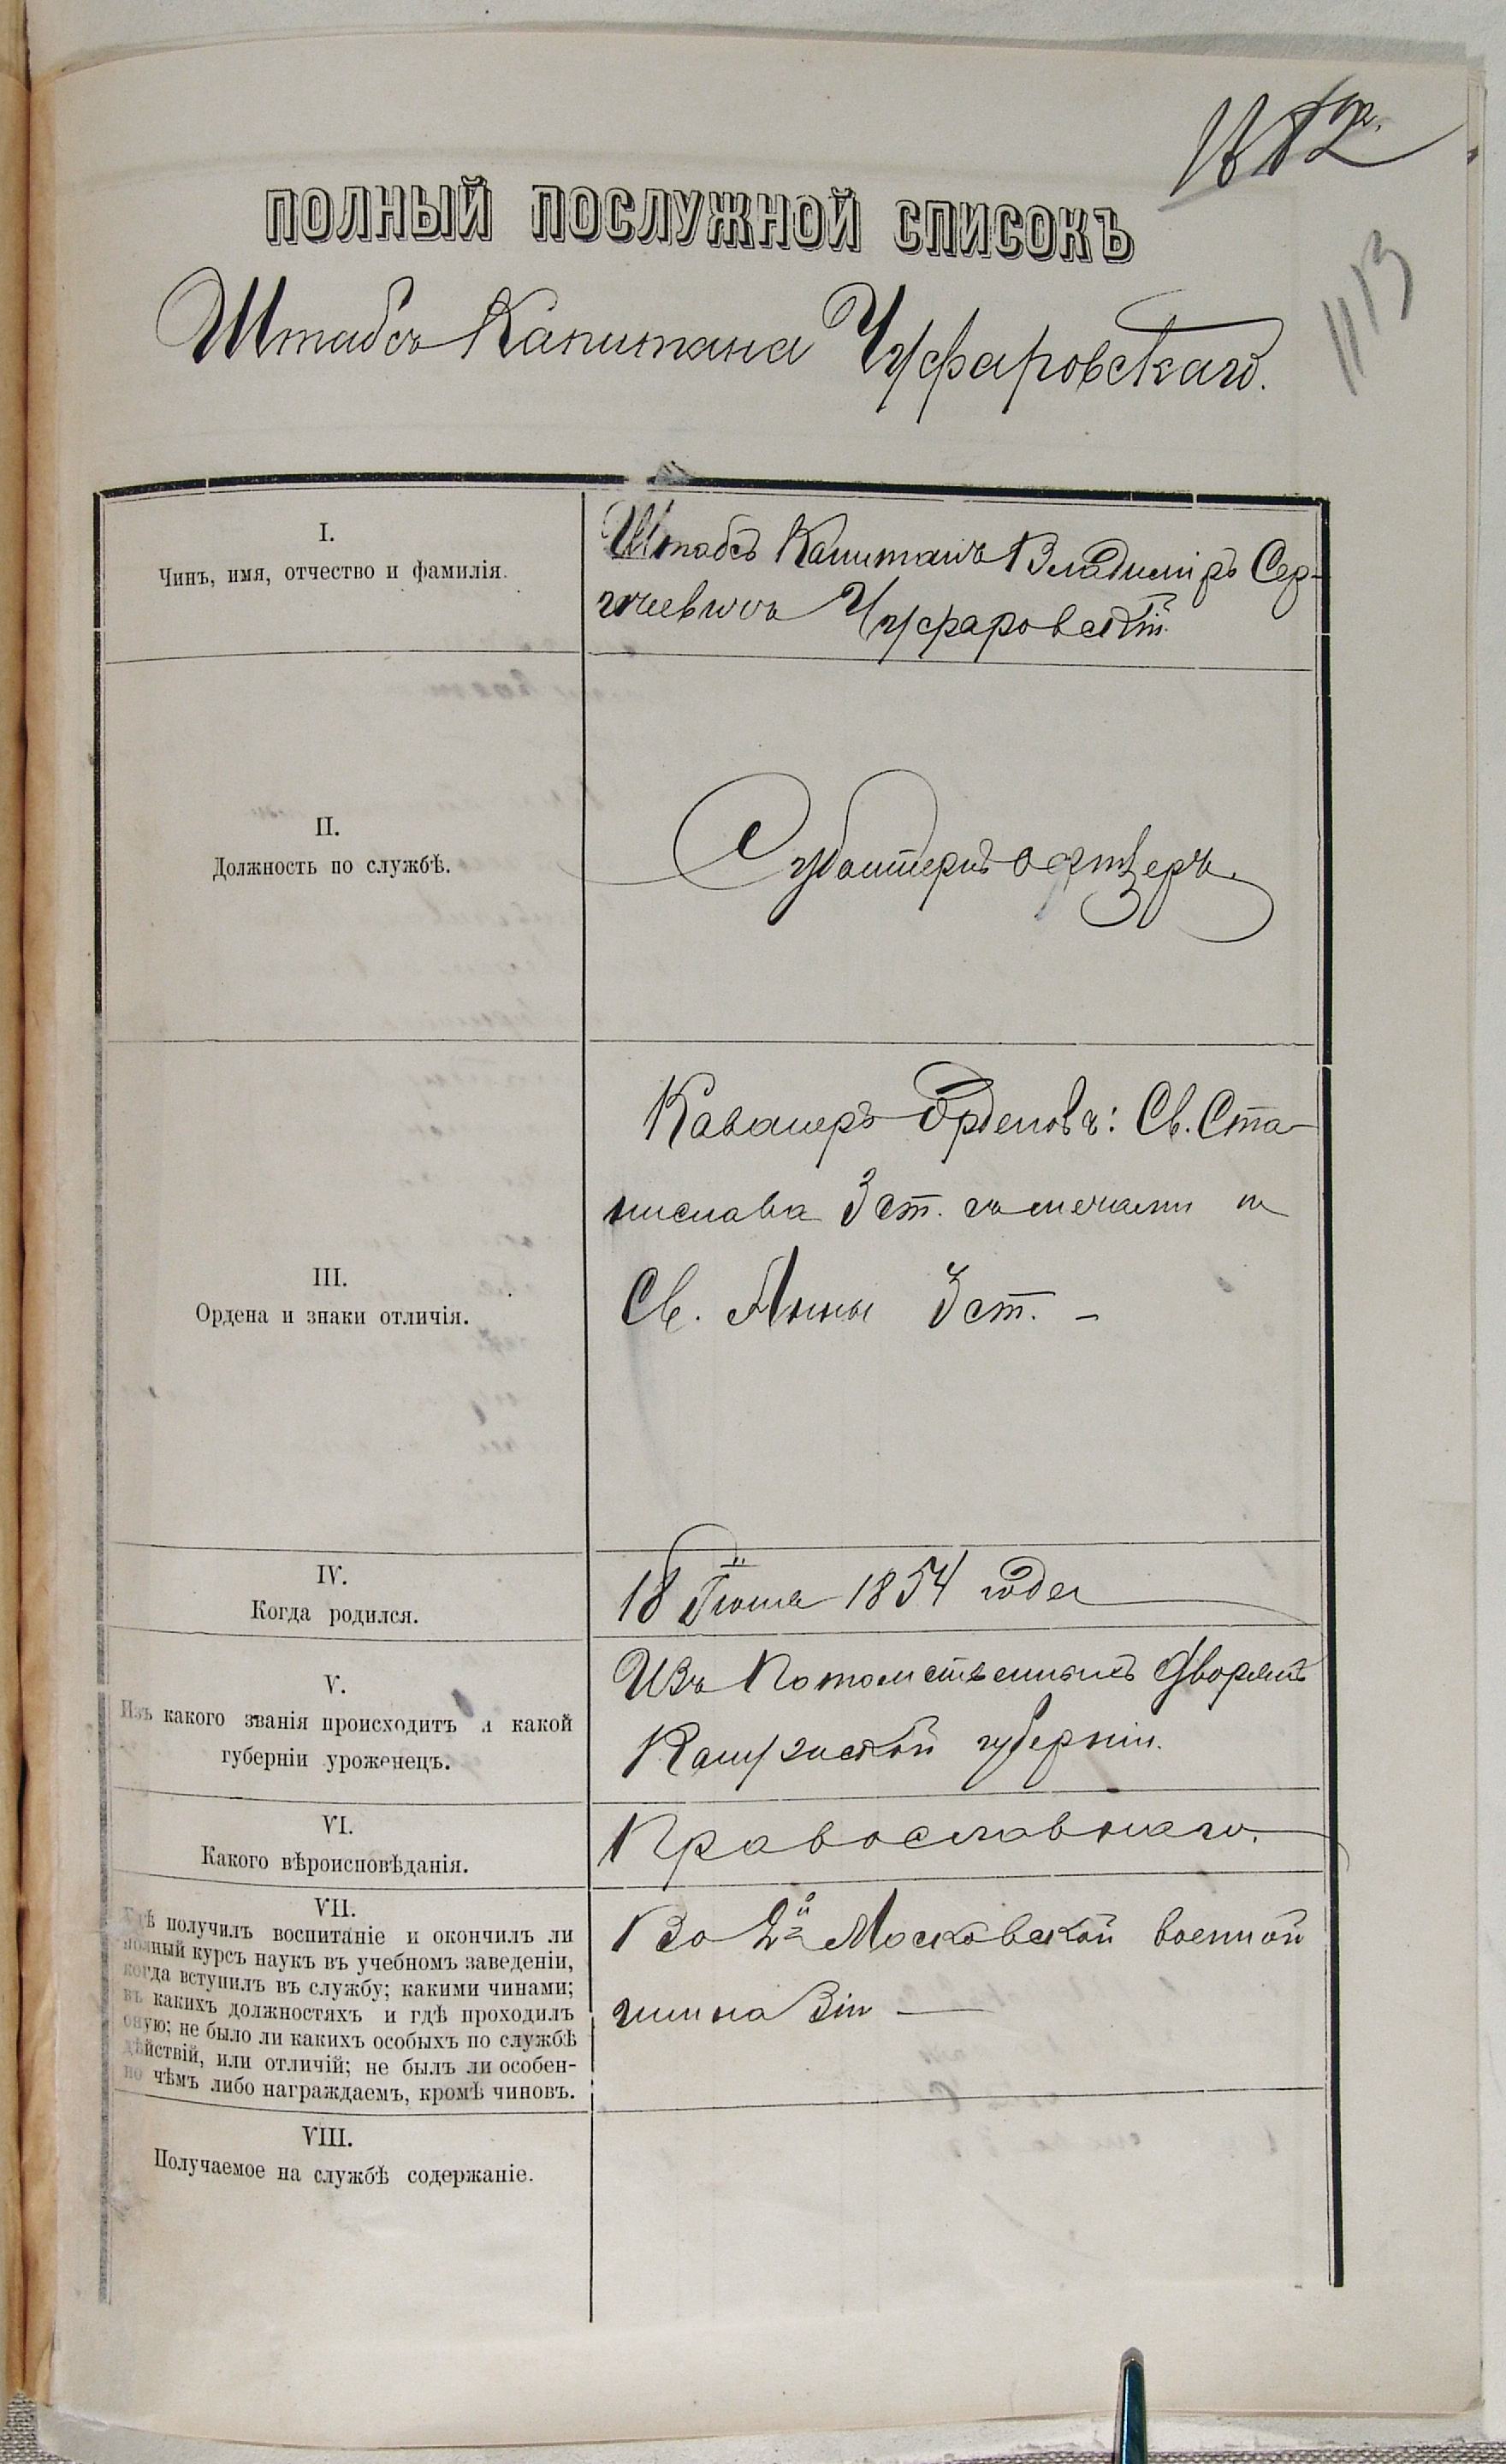 1882 га.
ПОЛНЫЙ ПОСЛУЖНОЙ СПИСОКЪ
1113
Штабсъ Капитана Чуфаровскаго.
I.
Чинъ, имя, отчество и фамилія.
Штабсъ Капитанъ Владиміръ Сер-
гѣевичъ Чуфаровскій.
II.
Должность по службѣ.
Субалтернъ офицеръ.
III.
Ордена и знаки отличія.
Кавалеръ Орденовъ: Св. Ста-
нислава 3 ст. съ мечами и
Св. Анны 3 ст. –
IV.
Когда родился.
18 Іюля 1854 года
V.
Изъ какого званія происходитъ и какой
губерніи уроженецъ.
Изъ Потомственныхъ Дворянъ
Калужской губерніи.
VI.
Какого вѣроисповѣданія.
Православнаго.
VII.
Гдѣ получилъ воспитаніе и окончилъ ли
полный курсъ наукъ въ учебномъ заведеніи,
когда вступилъ въ службу; какими чинами;
въ какихъ должностяхъ и гдѣ проходилъ
оную; не было ли какихъ особыхъ по службѣ
дѣйствій, или отличій; не былъ ли особен-
но чѣмъ либо награждаемъ, кромѣ чиновъ.
Во 2й Московской военной
гимназіи —
VIII.
Получаемое на службѣ содержаніе.